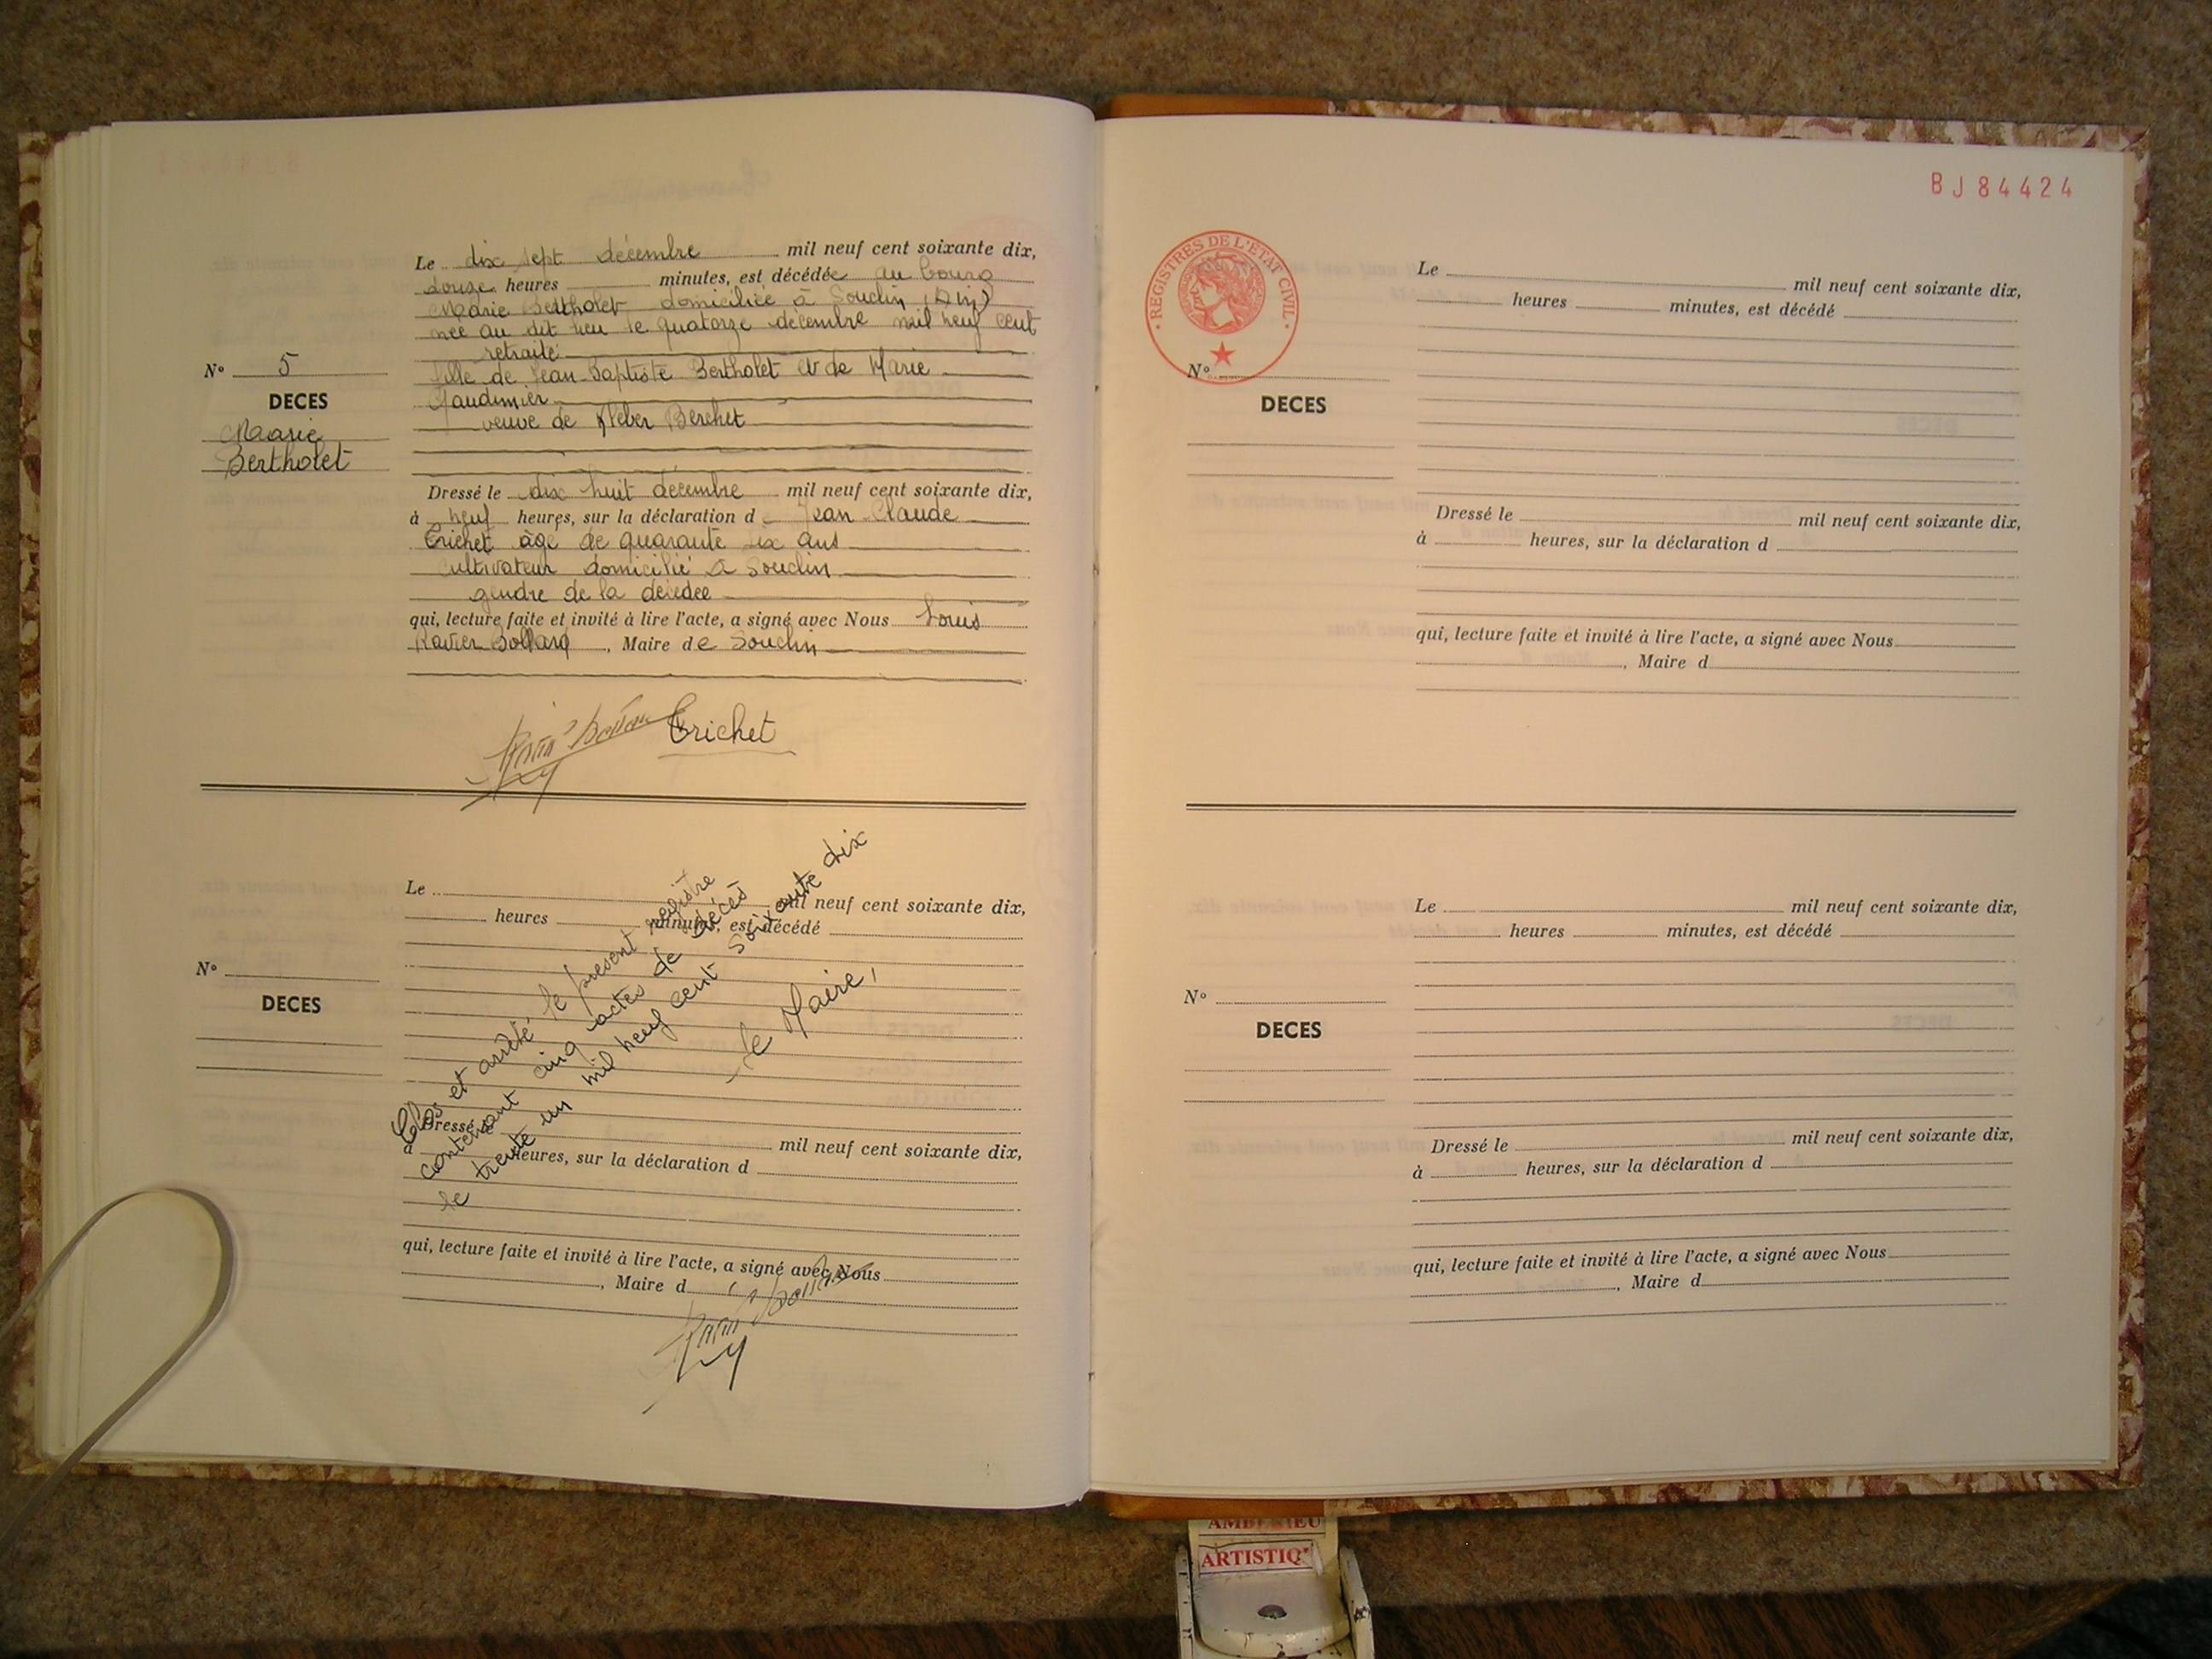 Le dix sept décembre mil neuf cent soixante dix,
douze heures minutes, est décédée au bourg
Marie Bertholet domiciliée à Souclin (Ain)
née au dit lieu le quatorze décembre mil neuf cent
retraité
fille de Jean-Baptiste Bertholet et de Marie
Gaudimier
veuve de Kleber Berchet
N° 5
DECES
Marie
Bertholet
Dressé le dix huit décembre mil neuf cent soixante dix,
à neuf heures, sur la déclaration d Jean-Claude
Trichet âgé de quarante six ans
cultivateur domicilié à Souclin
gendre de la décédée
qui, lecture faite et invité à lire l'acte, a signé avec Nous Louis
Xavier Bollard, Maire de Souclin
Trichet
Le mil neuf cent soixante dix,
heures minutes, est décédé
N°
DECES
Dressé le mil neuf cent soixante dix,
à heures, sur la déclaration d
qui, lecture faite et invité à lire l'acte, a signé avec Nous
, Maire d
Clos et arrêté le présent registre
contenant cinq actes de décès
le trente un mil neuf cent soixante dix
le Maire,
BJ84424
REGISTRES DE L'ÉTAT CIVIL
Le mil neuf cent soixante dix,
heures minutes, est décédé
N°
DECES
Dressé le mil neuf cent soixante dix,
à heures, sur la déclaration d
qui, lecture faite et invité à lire l'acte, a signé avec Nous
, Maire d
Le mil neuf cent soixante dix,
heures minutes, est décédé
N°
DECES
Dressé le mil neuf cent soixante dix,
à heures, sur la déclaration d
qui, lecture faite et invité à lire l'acte, a signé avec Nous
, Maire d
ARTISTIQ